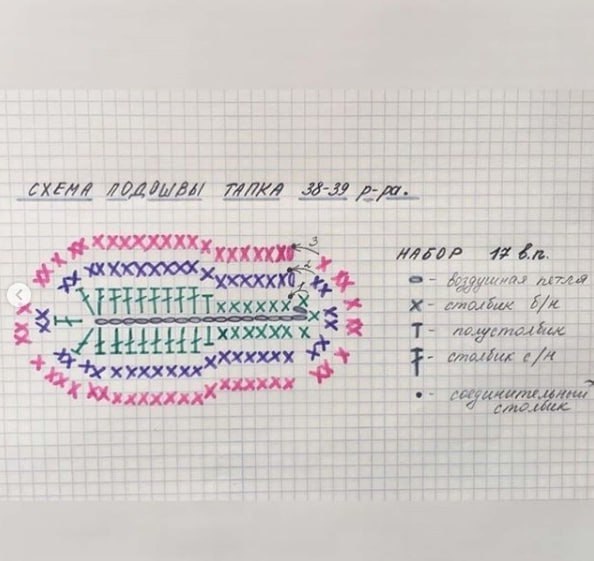 СХЕМА ПОДОШВЫ ТАПКА 38-39 р-ра.
3
2
1
НАБОР 17 в.п.
- воздушная петля
- столбик б/н
- полустолбик
- столбик с/н
- соединительный
столбик